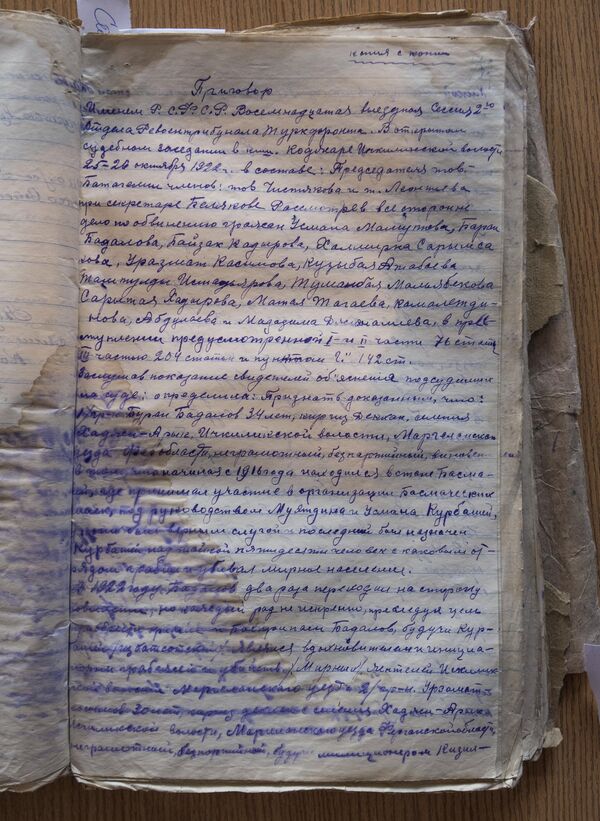 копия с копии
Приговор
Именем Р.С.Ф.С.Р. Восемнадцатая выездная Сессия 2го
отдела Реввоентрибунала Туркфронта. В открытом
судебном заседании в киш. Кодикаре Ичкилинской волости
25-26 октября 1922 г. в составе: Председателя тов.
членов: тов Чистякова и т. Леонтьева
при секретаре Белякове Рассмотрев все сторонне
дело по обвинению граждан Усмана Мамутова, Баран
Бадалова, Байзак Кадырова, Халмирка Сарымса
кова, Уразмат Касимова, Кузыбая Атабаева
Исмадьярова, Тушанбая
Сарымая Хадырова, Матая Тагаева, Камалетди-
нова, Абдулаева и Мадазима в прес-
туплении предусмотренной I и II части 76 статьи
III частью 204 статьи и пунктом "г" 142 ст.
Заслушав показание свидетелей об'яснения подсудимых
на суде: определила: Признать доказанным, что:
Бадалов 34 лет, киргиз Декхан, селения
Хаджи-Арык, Ичкилинской волости, Маргеланского
уезда Фер области, неграмотный, безпартийный, виновен
в том, что начиная с 1916 года находился в стане Басма-
чей, где принимал участие в организации Басмаческих
под руководством Муятдина и Усмана Курбашей,
верным слугой и последний был назначен
Курбаши над шайкой пятидесяти человек с каковым от-
рядом грабил и убивал мирное население.
В 1922 году Бадалов два раза переходил на сторону
но каждый раз не искренно, преследуя цель
Бадалов, будучи Кур-
являлся вдохновителем и инициа-
тором грабежей и убийств Мирных жителей Ичкилин-
ской волости Маргеланского уезда 2/ гр-н. Уразмат
Касимов 30 лет, декхан селения Хаджи-Арыка
Ичкилинской волости, Маргеланского уезда Ферганской области,
неграмотный, безпартийный, будучи милиционером Кизил-